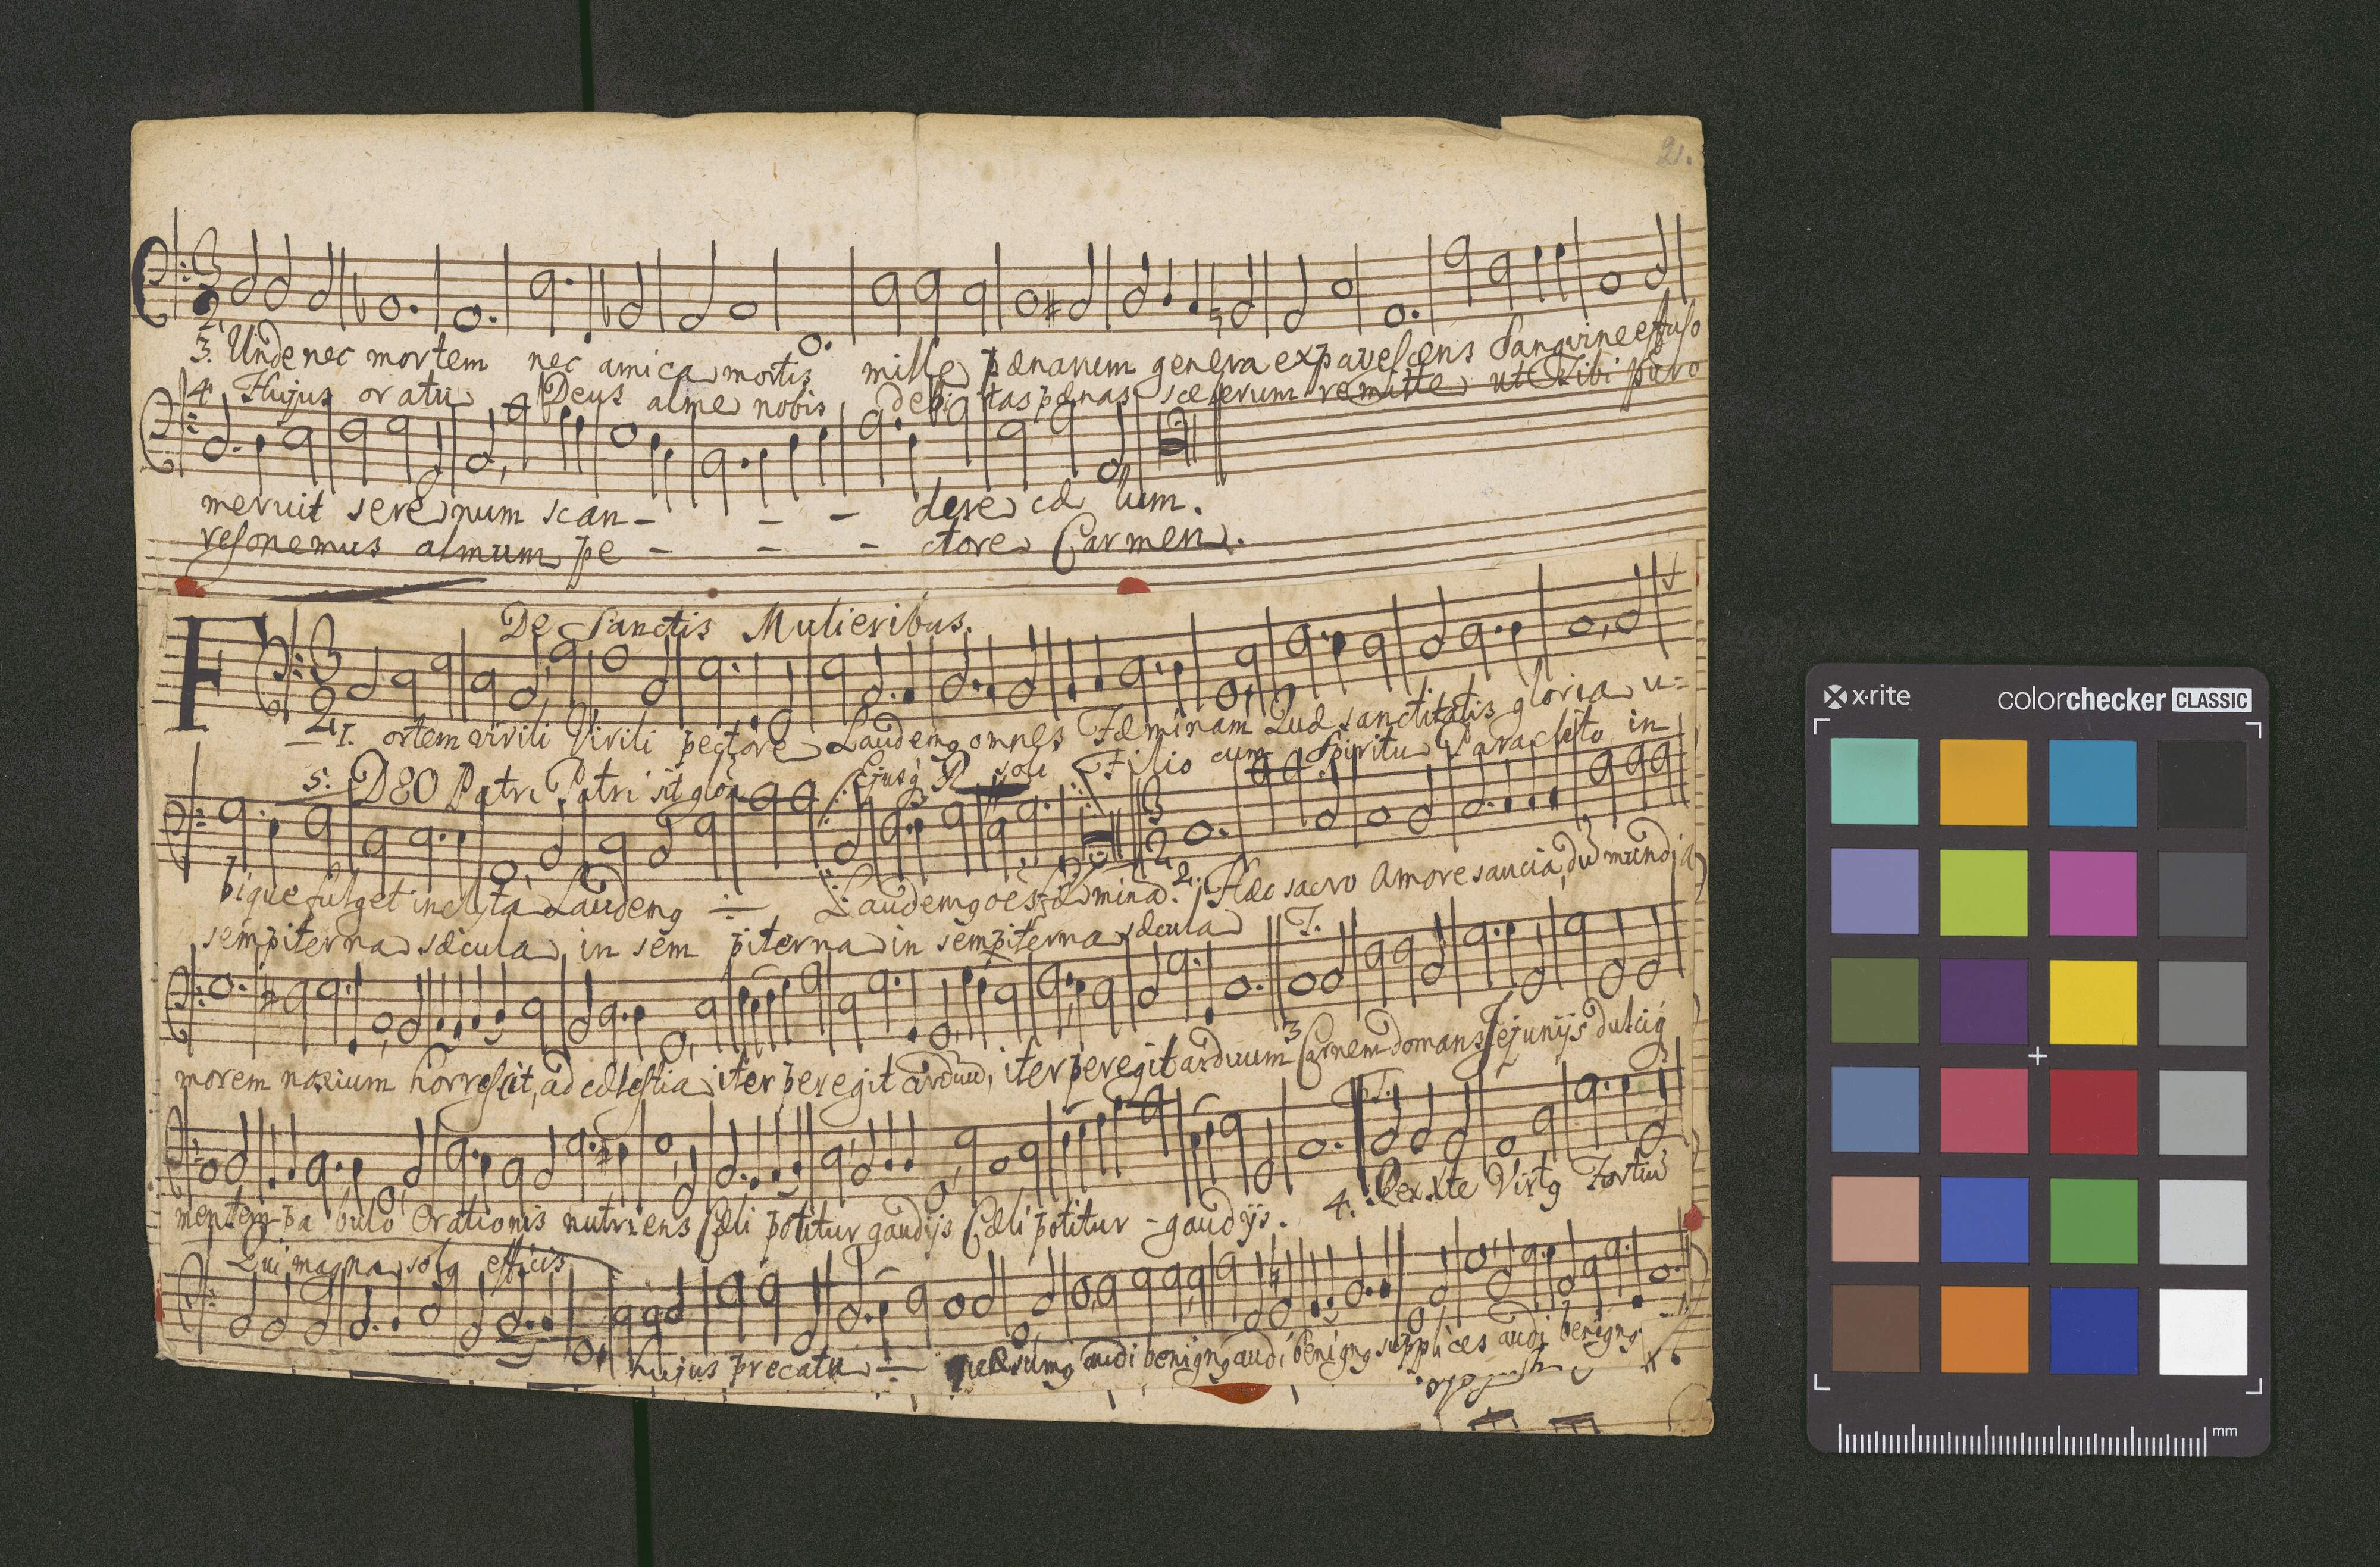 21.
3. Unde nec mortem nec amica mortis mille pænarum genera expavescens Sanguine effuso
4. Hujus oratu Deus alme nobis debitas pænas scelerum remitte ut Tibi puro
meruit serenum scan - - - dere cæ lum.
resonemus almum pe - - - ctore Carmen.
De Sanctis Mulieribus.
F
1. ortem virili Virili pectore Laudemq omnes Fæminam Quæ sanctitatis gloria u=
5. DEO Patri Patri sit gloa Ejusq soli Filio cum Spiritu Paraclito in
bique fulget inclyta Laudemq Laudemq oes Fæmina. 2. Hæc sacro Amore saucia, dū mundi a
sempiterna sæcula, in sem piterna in sempiterna sæcula T.
morem noxium horrescit, ad cælestia iter peregit arduū, iter peregit arduum 3 Carnem domans Jejunijs dulciq
T.
mentem pa bulo Orationis nutriens Cæli potitur gaudijs Cæli potitur - gaudijs. 4. Rex Xte Virtq Fortiū
Qui magna solq efficis
hujus precatu quæsumq audi benignq audi benignq supplices audi benignq
x-rite
colorchecker CLASSIC
mm